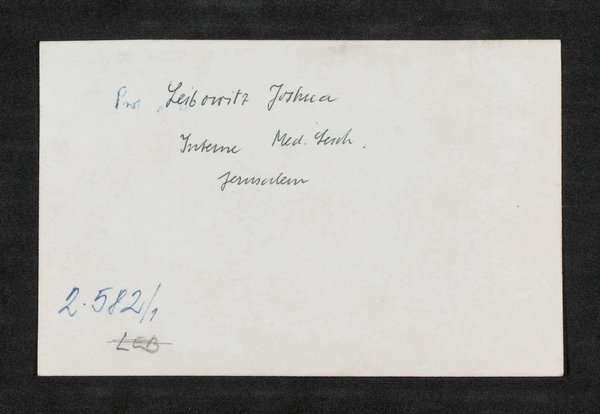 Prof Leibowitz Joshua
Interne Med. Gesch.
Jerusalem
2.582/1
LEB